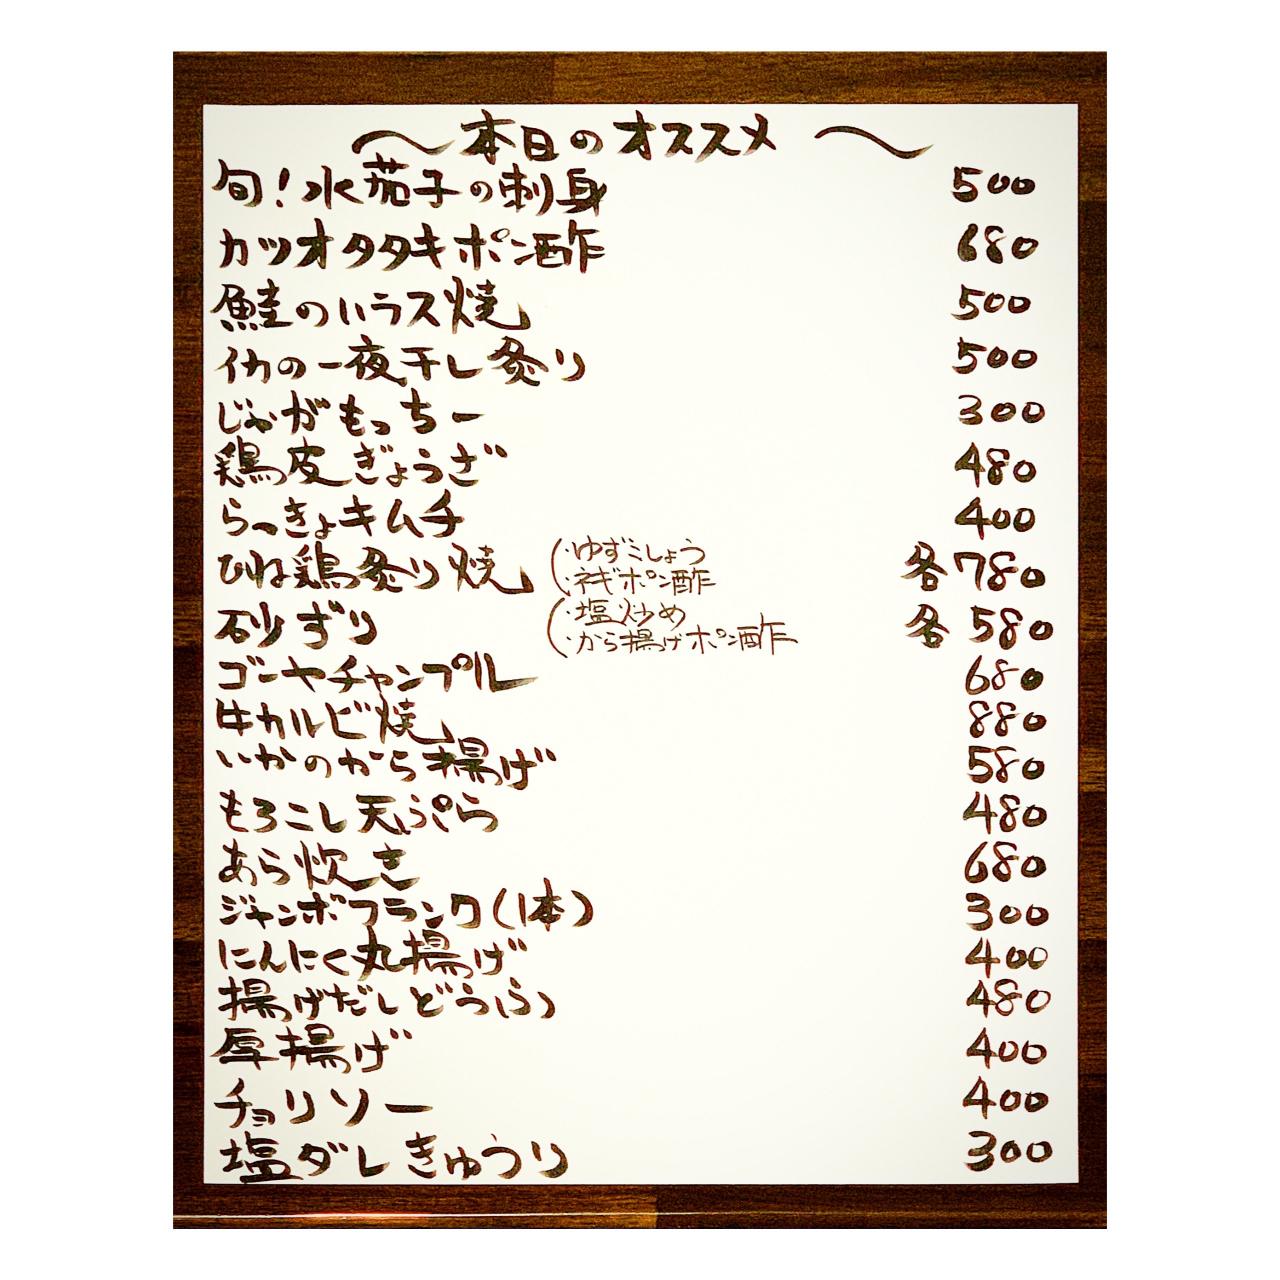 ～本日のオススメ～
旬！水茄子の刺身 500
カツオタタキポン酢 680
鮭のハラス焼 500
イカの一夜干し炙り 500
じゃがもっちー 300
鶏皮ぎょうざ 480
らっきょキムチ 400
ひね鶏炙り焼 (・ゆずこしょう ・ネギポン酢 各780
砂ずり (・塩炒め ・から揚げポン酢 各580
ゴーヤチャンプル 680
牛カルビ焼 880
いかのから揚げ 580
もろこし天ぷら 480
あら炊き 680
ジャンボフランク(1本) 300
にんにく丸揚げ 400
揚げだしどうふ 480
厚揚げ 400
チョリソー 400
塩ダレきゅうり 300